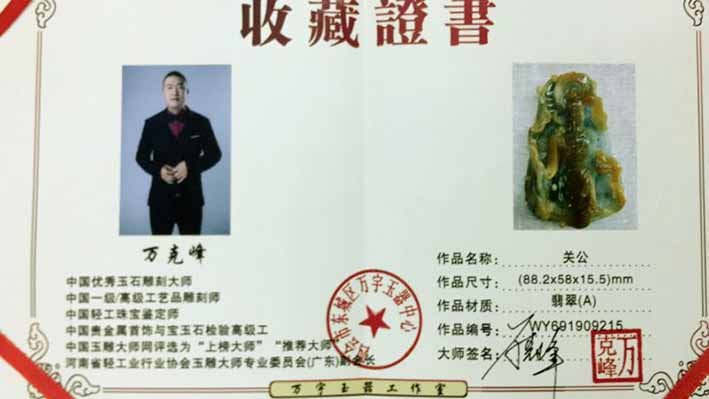 收藏證書
万克峰
中国优秀玉石雕刻大师
中国一级/高级工艺品雕刻师
中国轻工珠宝鉴定师
中国贵金属首饰与宝玉石检验高级工
中国玉雕大师网评选为“上榜大师”“推荐大师”
河南省轻工业行业协会玉雕大师专业委员会(广东)副会长
作品名称： 关公
作品尺寸： (88.2x58x15.5)mm
作品材质： 翡翠(A)
作品编号： WY691909215
大师签名： 万克峰
万克峰
市东城区万宇玉器中心
万宇玉器工作室